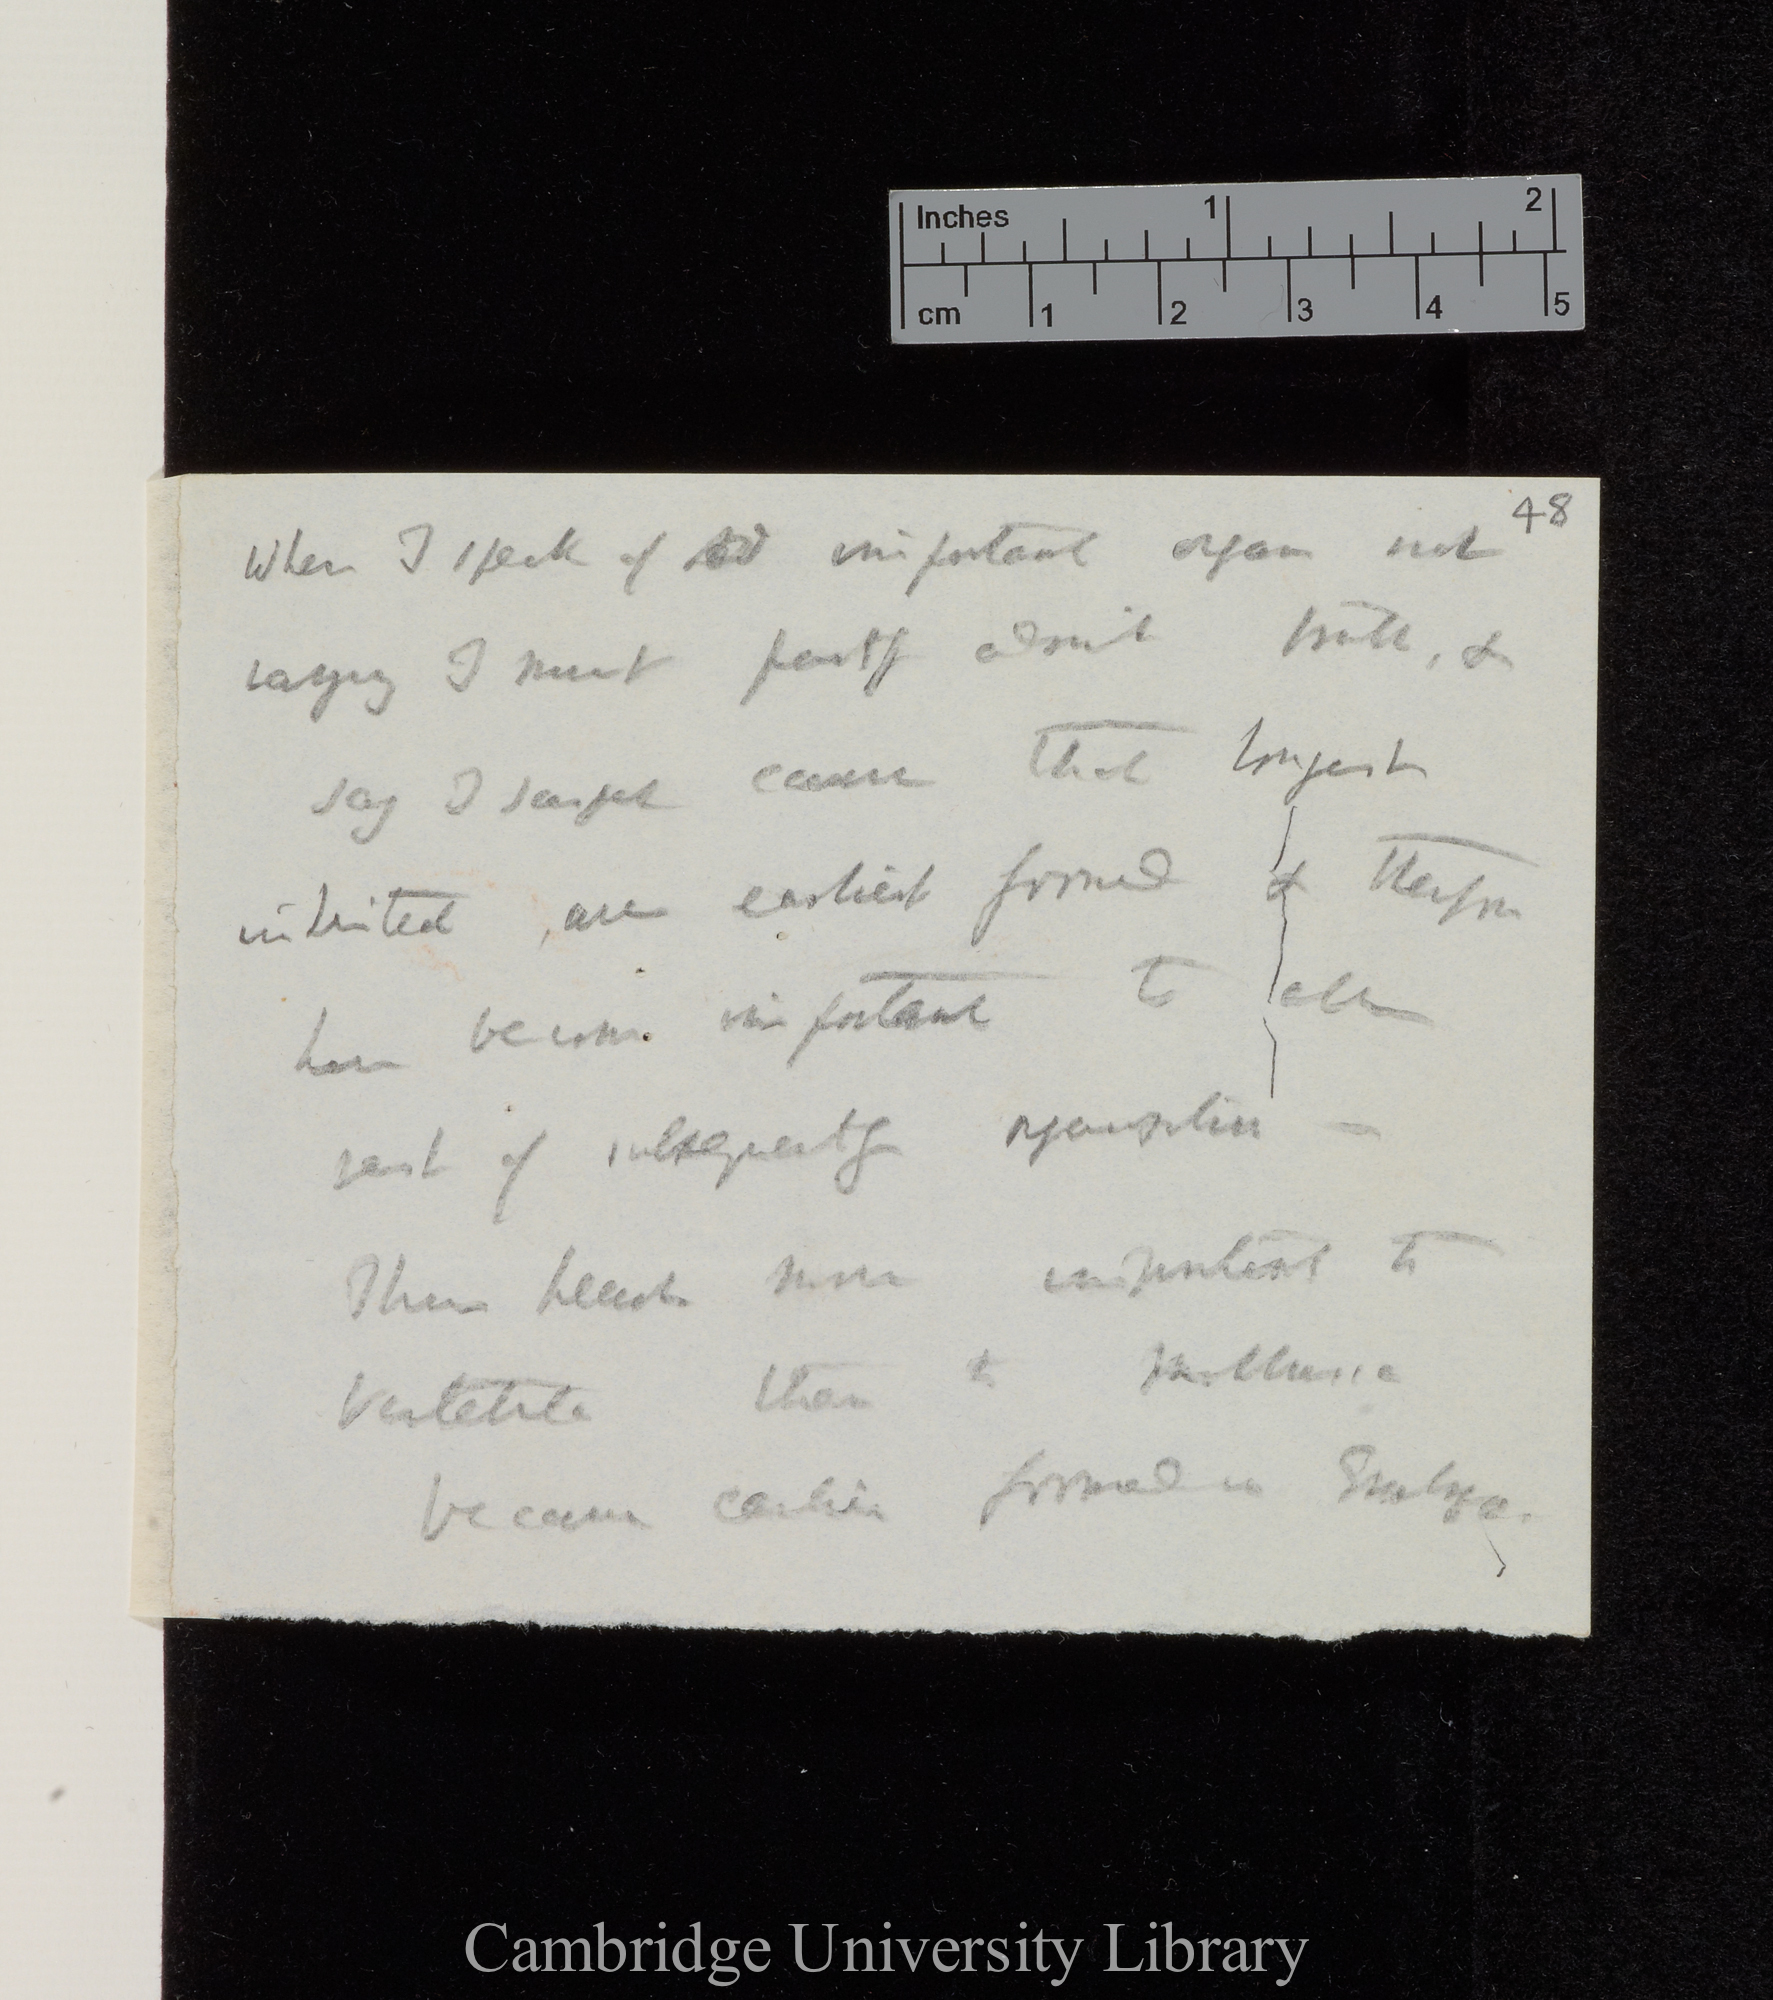 Inches 1 2
cm 1 2 3 4 5
48
When I speak of important organ not
varying I must partly admit truth, &
say I suspect cause that longest
inherited, are earliest formed & therefore
have become important to all
rest of subsequently organisation —
Thus heart more important to
Vertebrata than to Mollusca
because earlier formed in Embryo.
Cambridge University Library